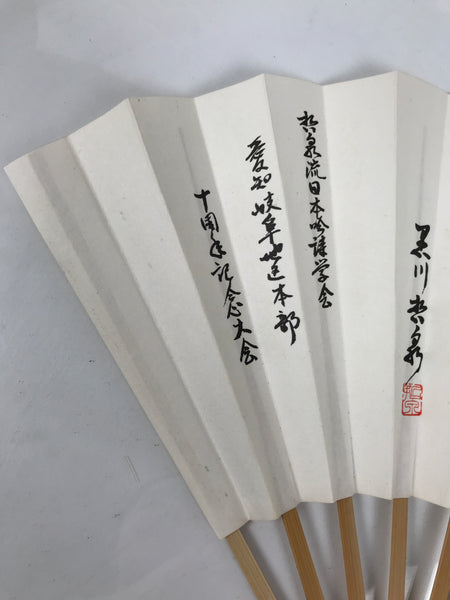 黒川哲泉
哲泉流日本吟詠学会
愛知岐阜地区本部
十周年記念大会